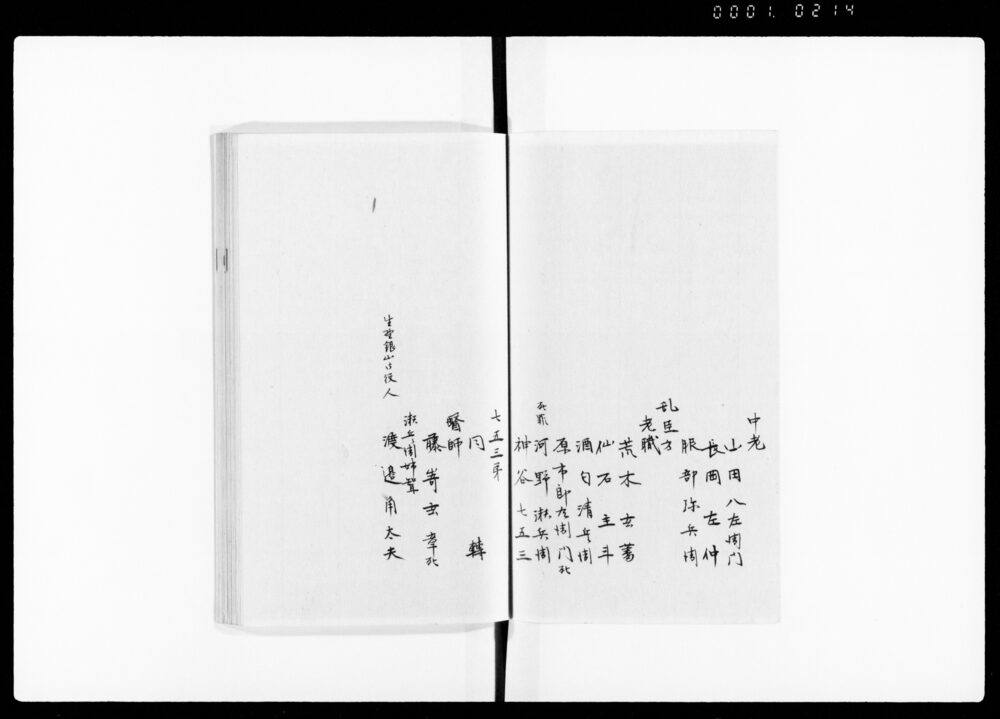 0001. 0214
中老
山田八左衛门
長岡左仲
服部弥兵衛
乱臣方
老職
荒木玄蕃
仙石主斗
酒匂清兵衛
原市郎左衛门死
死罪
河野瀬兵衛
神谷七五三
七五三弟
同 轉
醫師
藤嵜玄 死
瀬兵衛姉聟
生野銀山古役人
渡邉角太夫